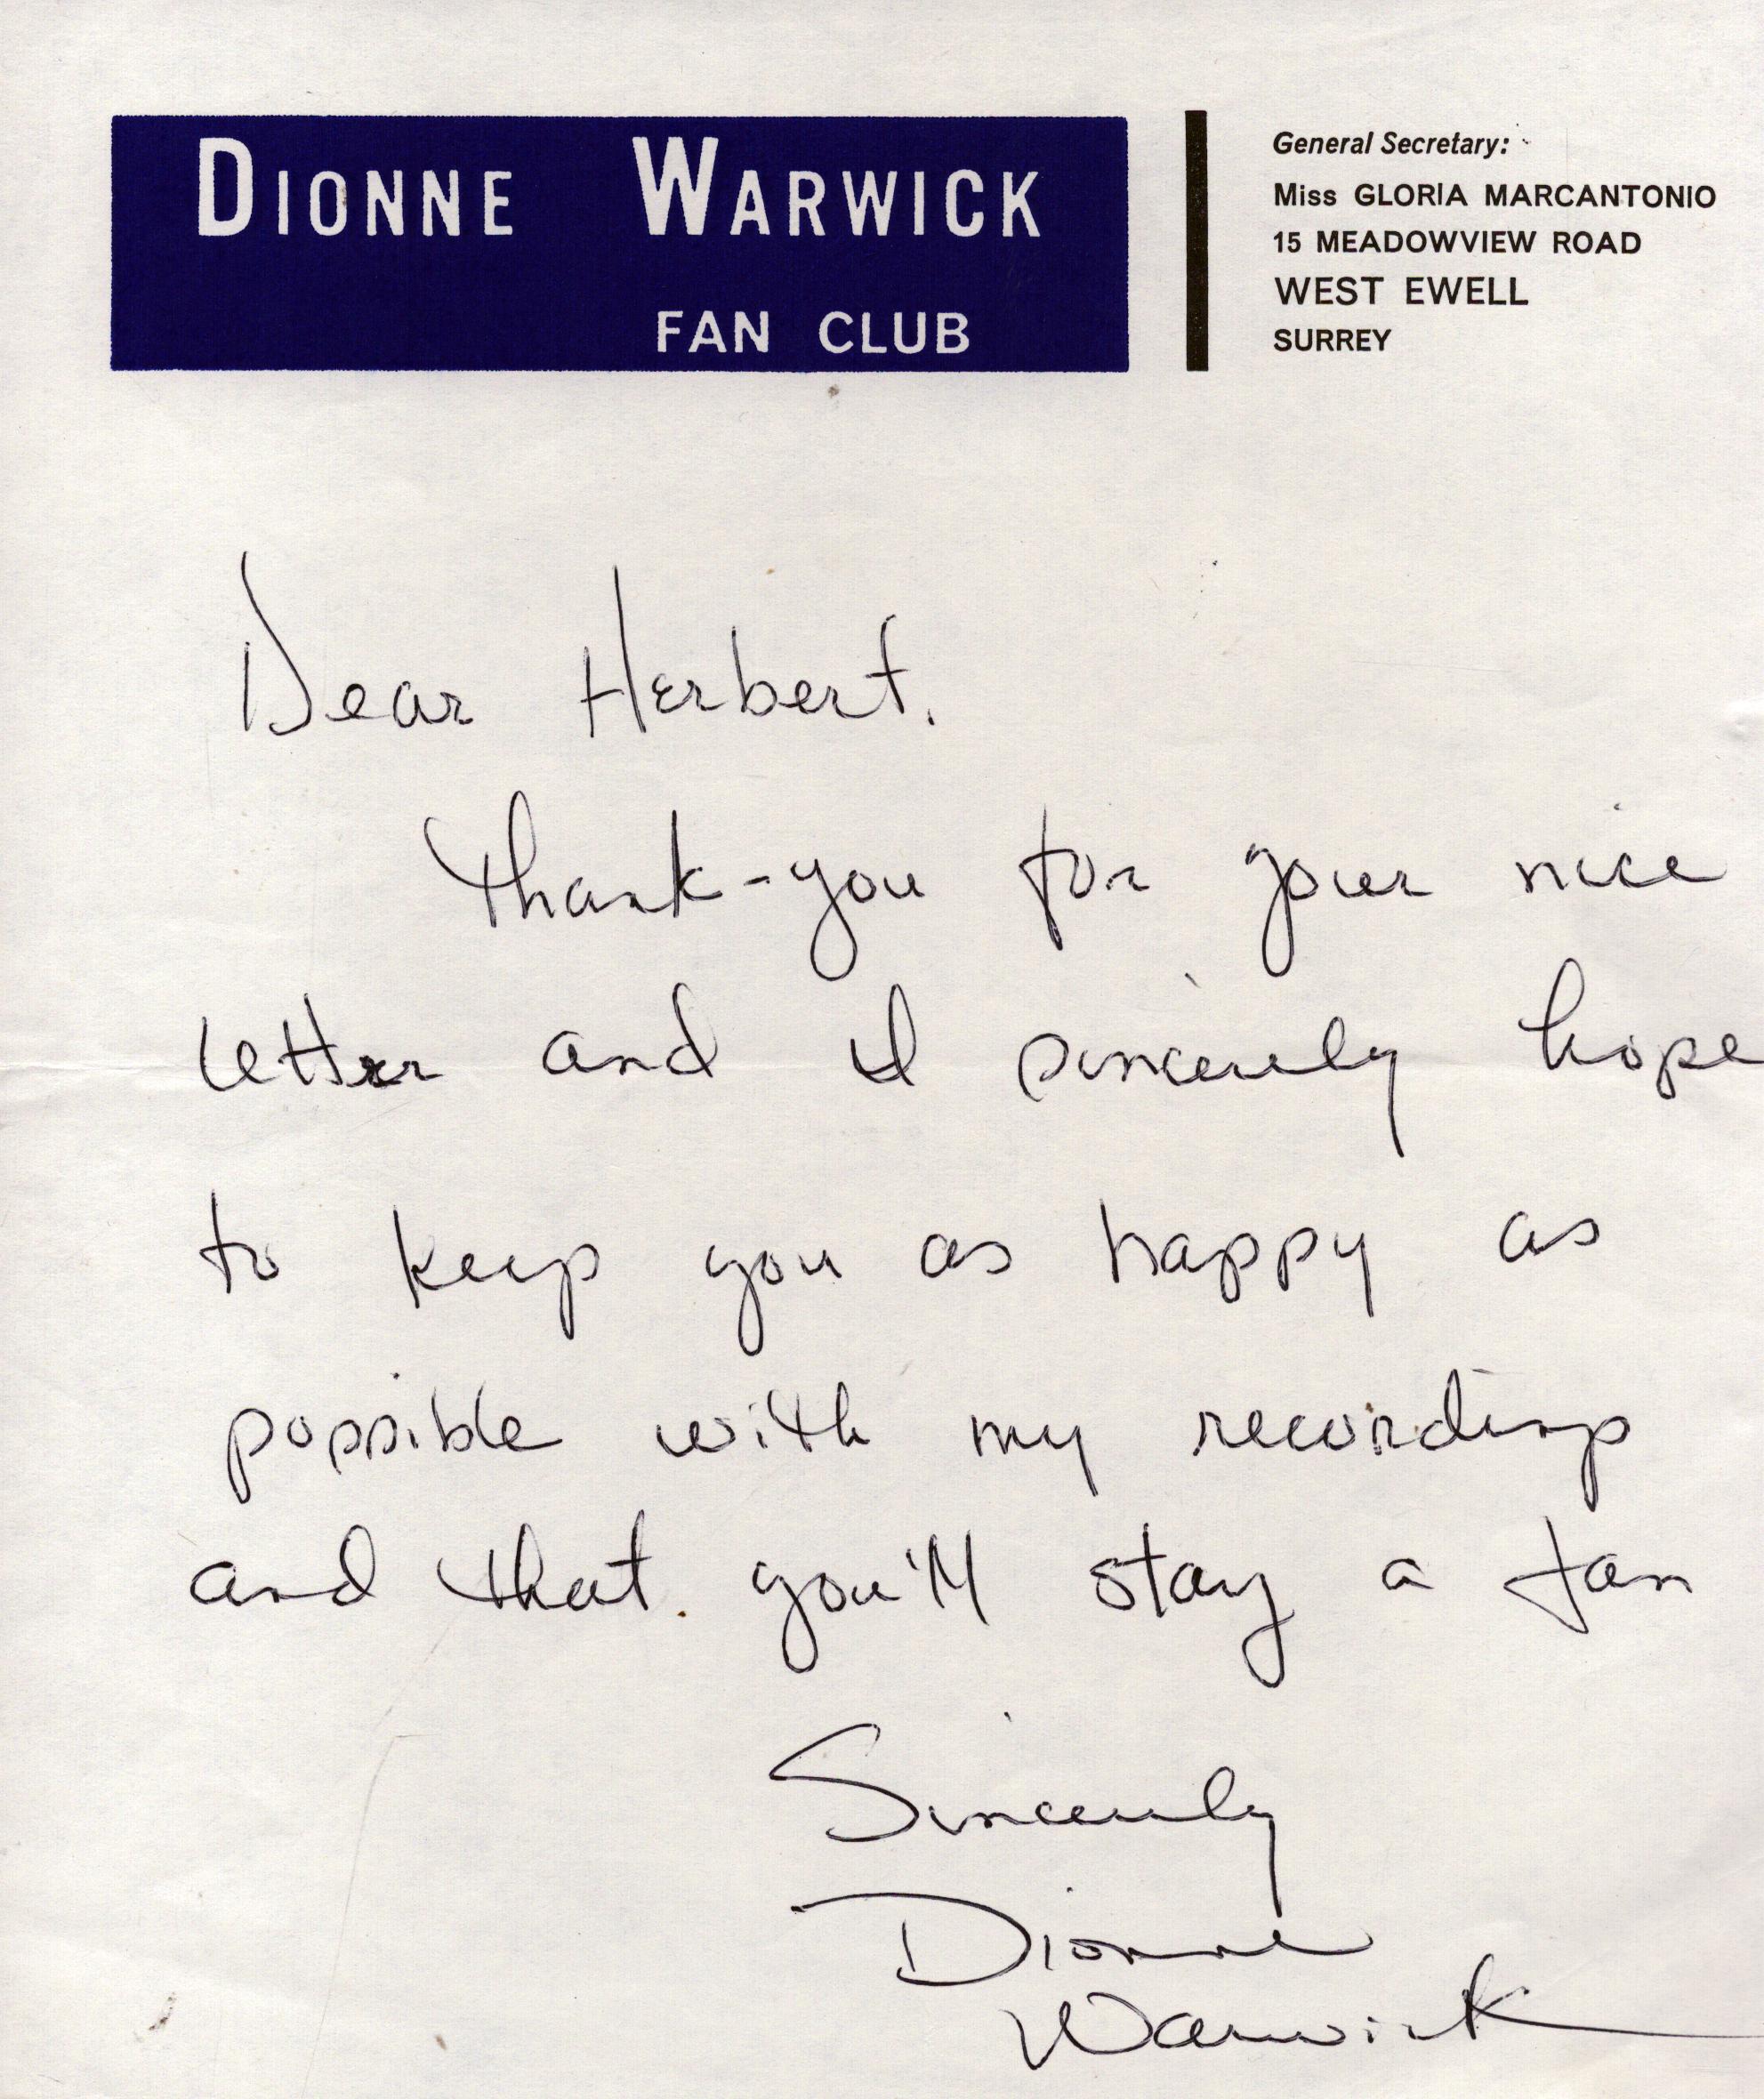 DIONNE WARWICK
FAN CLUB
General Secretary:
Miss GLORIA MARCANTONIO
15 MEADOWVIEW ROAD
WEST EWELL
SURREY
Dear Herbert.
Thank-you for your nice
letter and I sincerely hope
to keep you as happy as
possible with my recordings
and that you'll stay a fan
Sincerely
Dionne
Warwick